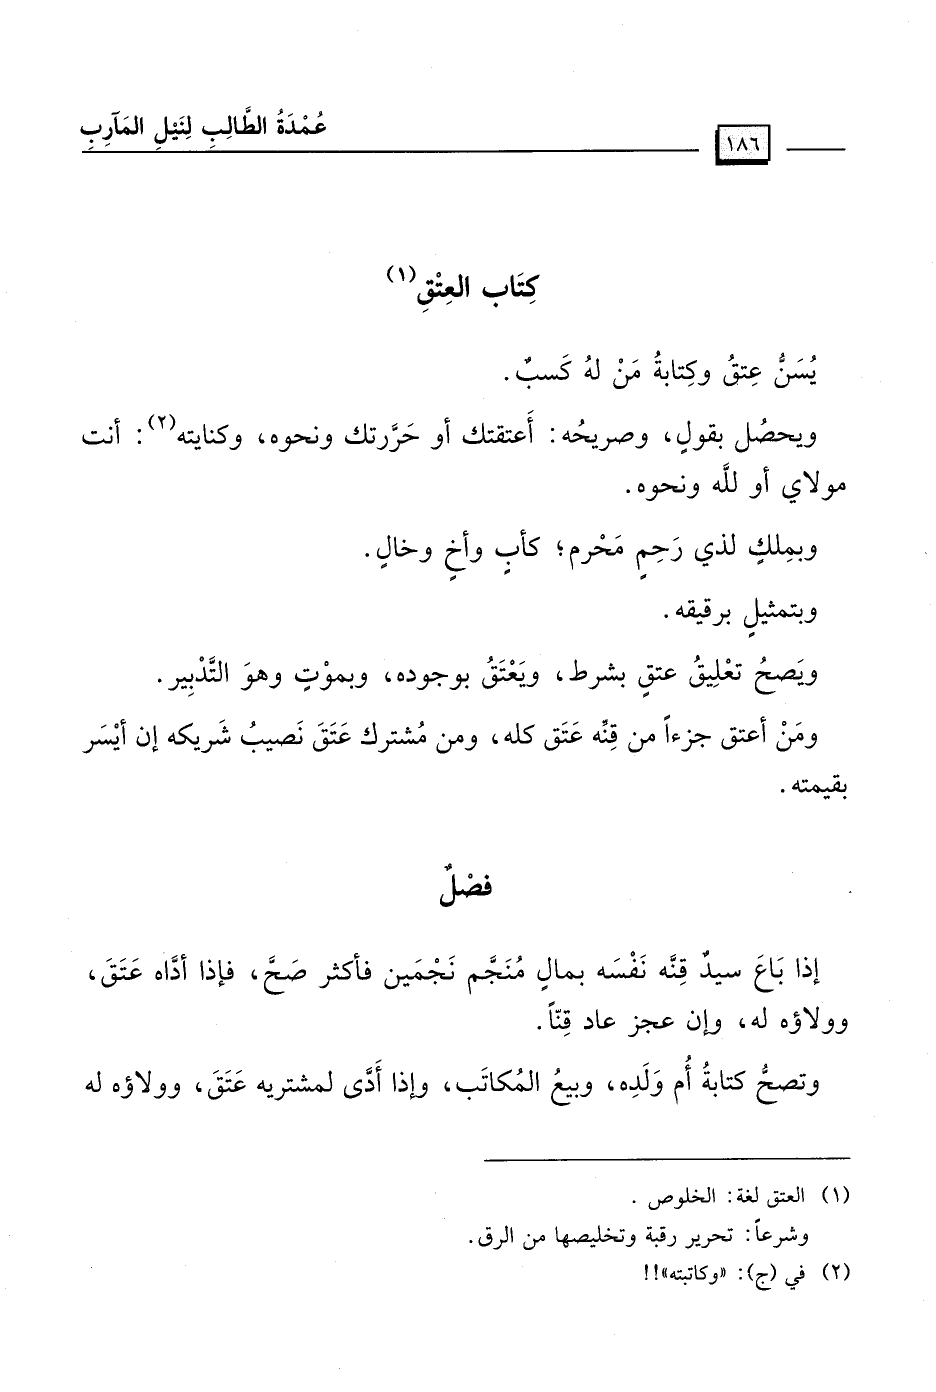 عُمْدَةُ الطَّالِبِ لِنَيْلِ المَآرِبِ
١٨٦
كِتَاب العِتْقِ(١)
يُسَنُّ عِتقُ وكِتابةُ مَنْ لهُ كَسبٌ.
ويحصُل بقولٍ، وصريحُه: أَعتقتك أو حَرَّرتك ونحوه، وكنايته(٢): أنت
مولاي أو للَّه ونحوه.
وبمِلكٍ لذي رَحِمٍ مَحْرم؛ كأبٍ وأخٍ وخالٍ.
وبتمثيلٍ برقيقه.
ويَصحُ تعْلِيقُ عتقٍ بشرط، ويَعْتَقُ بوجوده، وبموْتٍ وهوَ التَّدْبِير.
ومَنْ أعتق جزءاً من قِنِّه عَتَق كله، ومن مُشترك عَتَقَ نَصيبُ شَريكه إن أيْسَر
بقيمته.
فصْلٌ
إذا بَاعَ سيدٌ قِنَّه نَفْسَه بمالٍ مُنَجَّم نَجْمَين فأكثر صَحَّ، فإذا أدَّاه عَتَقَ،
وولاؤه له، وإن عجز عاد قِنّاً.
وتصحُّ كتابةُ أُم وَلَدِه، وبيعُ المُكاتَب، وإذا أَدَّى لمشتريه عَتَقَ، وولاؤه له
(١) العتق لغة: الخلوص .
وشرعاً: تحرير رقبة وتخليصها من الرق.
(٢) في (ج): «وكاتبته»!!